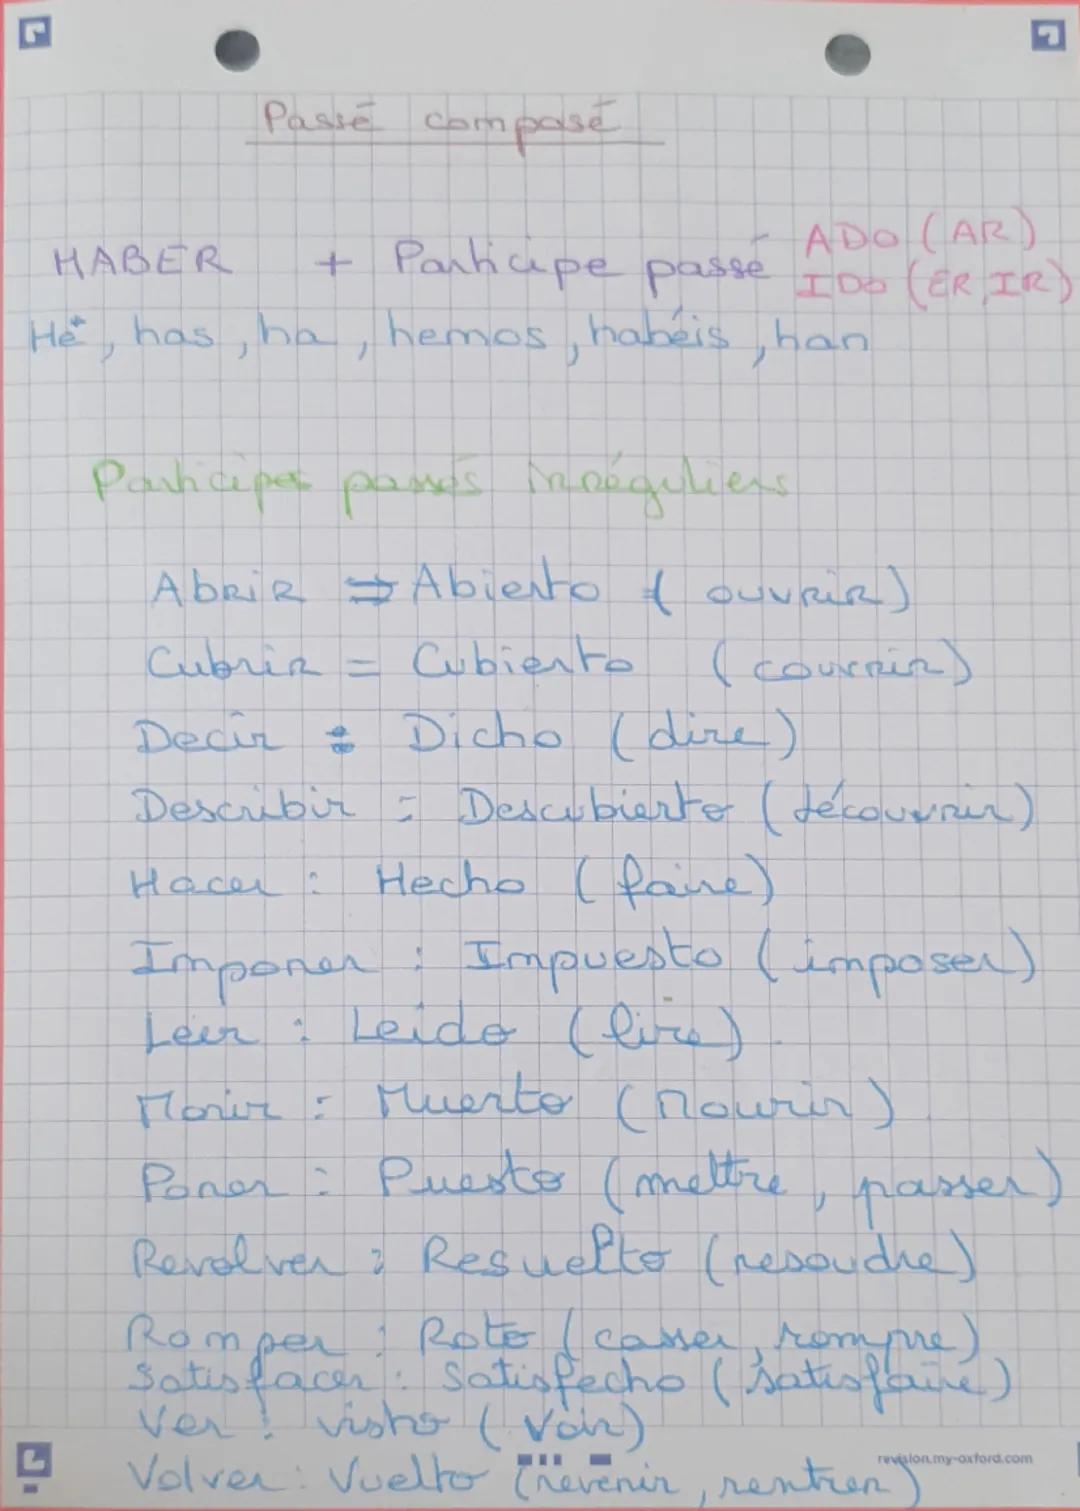 Passé composé
HABER + Participe passé ADO (AR)
IDO (ER, IR)
He, has, ha, hemos, habéis, han
Participes passés irréguliers
Abrir ⇒ Abierto (ouvrir)
Cubrir = Cubierto (couvrir)
Decir : Dicho (dire)
Describir : Descubierto (découvrir)
Hacer : Hecho (faire)
Imponer : Impuesto (imposer)
Leer : Leido (lire)
Morir : Muerto (Mourir)
Poner : Puesto (mettre, passer)
Revolver : Resuelto (resoudre)
Romper : Roto (casser, rompre)
Satisfacer : Satisfecho (satisfaire)
Ver : visto (Voir)
revision.my-oxford.com
Volver : Vuelto (revenir, rentrer)